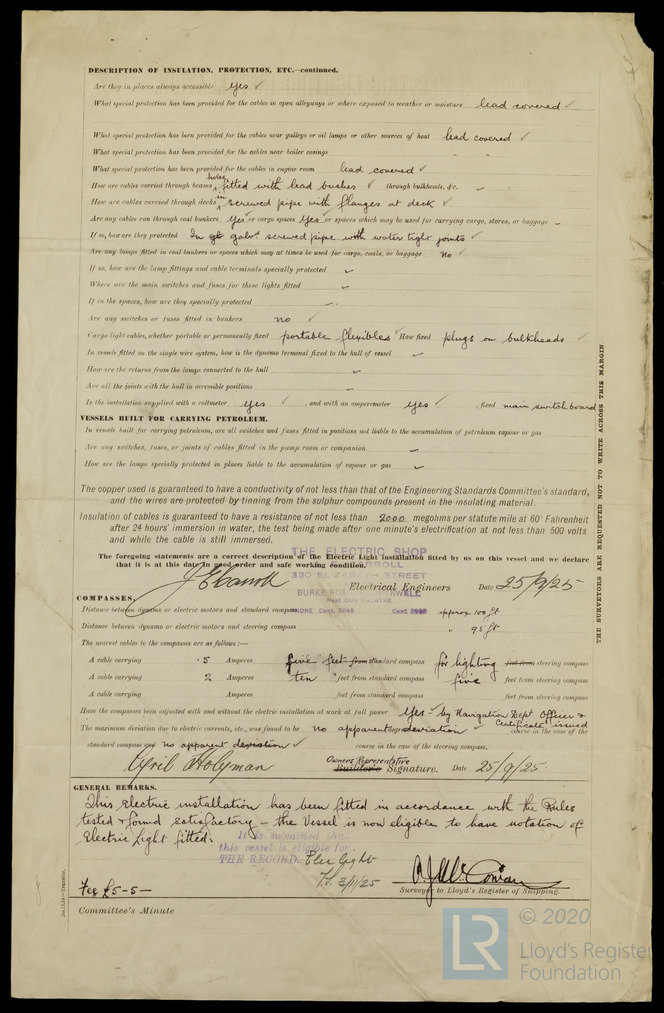 DESCRIPTION OF INSULATION, PROTECTION, ETC.—continued.
Are they in places always accessible yes ✓
What special protection has been provided for the cables in open alleyways or where exposed to weather or moisture lead covered ✓
What special protection has been provided for the cables near galleys or oil lamps or other sources of heat lead covered ✓
What special protection has been provided for the cables near boiler casings " "
What special protection has been provided for the cables in engine room lead covered ✓
How are cables carried through beams holes fitted with lead bushes ✓ through bulkheads, &c. ✓
How are cables carried through decks in screwed pipe with flanges at deck ✓
Are any cables run through coal bunkers yes ✓ or cargo spaces yes ✓ or spaces which may be used for carrying cargo, stores, or baggage –
If so, how are they protected In galv. screwed pipe with water tight joints ✓
Are any lamps fitted in coal bunkers or spaces which may at times be used for cargo, coals, or baggage no ✓
If so, how are the lamp fittings and cable terminals specially protected ✓
Where are the main switches and fuses for these lights fitted ✓
If in the spaces, how are they specially protected ✓
Are any switches or fuses fitted in bunkers no ✓
Cargo light cables, whether portable or permanently fixed portable flexibles ✓ How fixed plugs on bulkheads ✓
In vessels fitted on the single wire system, how is the dynamo terminal fixed to the hull of vessel ✓
How are the returns from the lamps connected to the hull ✓
Are all the joints with the hull in accessible positions ✓
Is the installation supplied with a voltmeter yes ✓ , and with an amperemeter yes ✓ , fixed main switch board
VESSELS BUILT FOR CARRYING PETROLEUM.
In vessels built for carrying petroleum, are all switches and fuses fitted in positions not liable to the accumulation of petroleum vapour or gas
Are any switches, fuses, or joints of cables fitted in the pump room or companion ✓
How are the lamps specially protected in places liable to the accumulation of vapour or gas ✓
The copper used is guaranteed to have a conductivity of not less than that of the Engineering Standards Committee's standard,
and the wires are protected by tinning from the sulphur compounds present in the insulating material.
Insulation of cables is guaranteed to have a resistance of not less than 2000 megohms per statute mile at 60° Fahrenheit
after 24 hours' immersion in water, the test being made after one minute's electrification at not less than 500 volts
and while the cable is still immersed.
The foregoing statements are a correct description of the Electric Light installation fitted by us on this vessel and we declare
that it is at this date in good order and safe working condition.
THE ELECTRIC SHOP
330 ELIZABETH STREET
Electrical Engineers Date 25/9/25
COMPASSES.
Distance between dynamo or electric motors and standard compass approx 100 ft
Distance between dynamo or electric motors and steering compass " 95 ft
The nearest cables to the compasses are as follows:—
A cable carrying .5 Amperes five feet from standard compass for lighting feet from steering compass
A cable carrying 2 Amperes ten feet from standard compass five feet from steering compass
A cable carrying Amperes feet from standard compass feet from steering compass
Have the compasses been adjusted with and without the electric installation at work at full power Yes – by Navigation Dept Officer &
Certificate issued
The maximum deviation due to electric currents, etc., was found to be no apparent deviation course in the case of the
standard compass and no apparent deviation ✓ course in the case of the steering compass.
Cyril Holyman Owners Representative Builder's Signature. Date 25/9/25.
GENERAL REMARKS.
This Electric installation has been fitted in accordance with the Rules
tested & found satisfactory – the Vessel is now eligible to have notation of
Electric Light fitted.
It is submitted that
this vessel is eligible for
THE RECORD. Elec light
3/11/25
Surveyor to Lloyd's Register of Shipping.
Fee £5-5–
Committee's Minute
THE SURVEYORS ARE REQUESTED NOT TO WRITE ACROSS THIS MARGIN
LR
© 2020
Lloyd's Register
Foundation